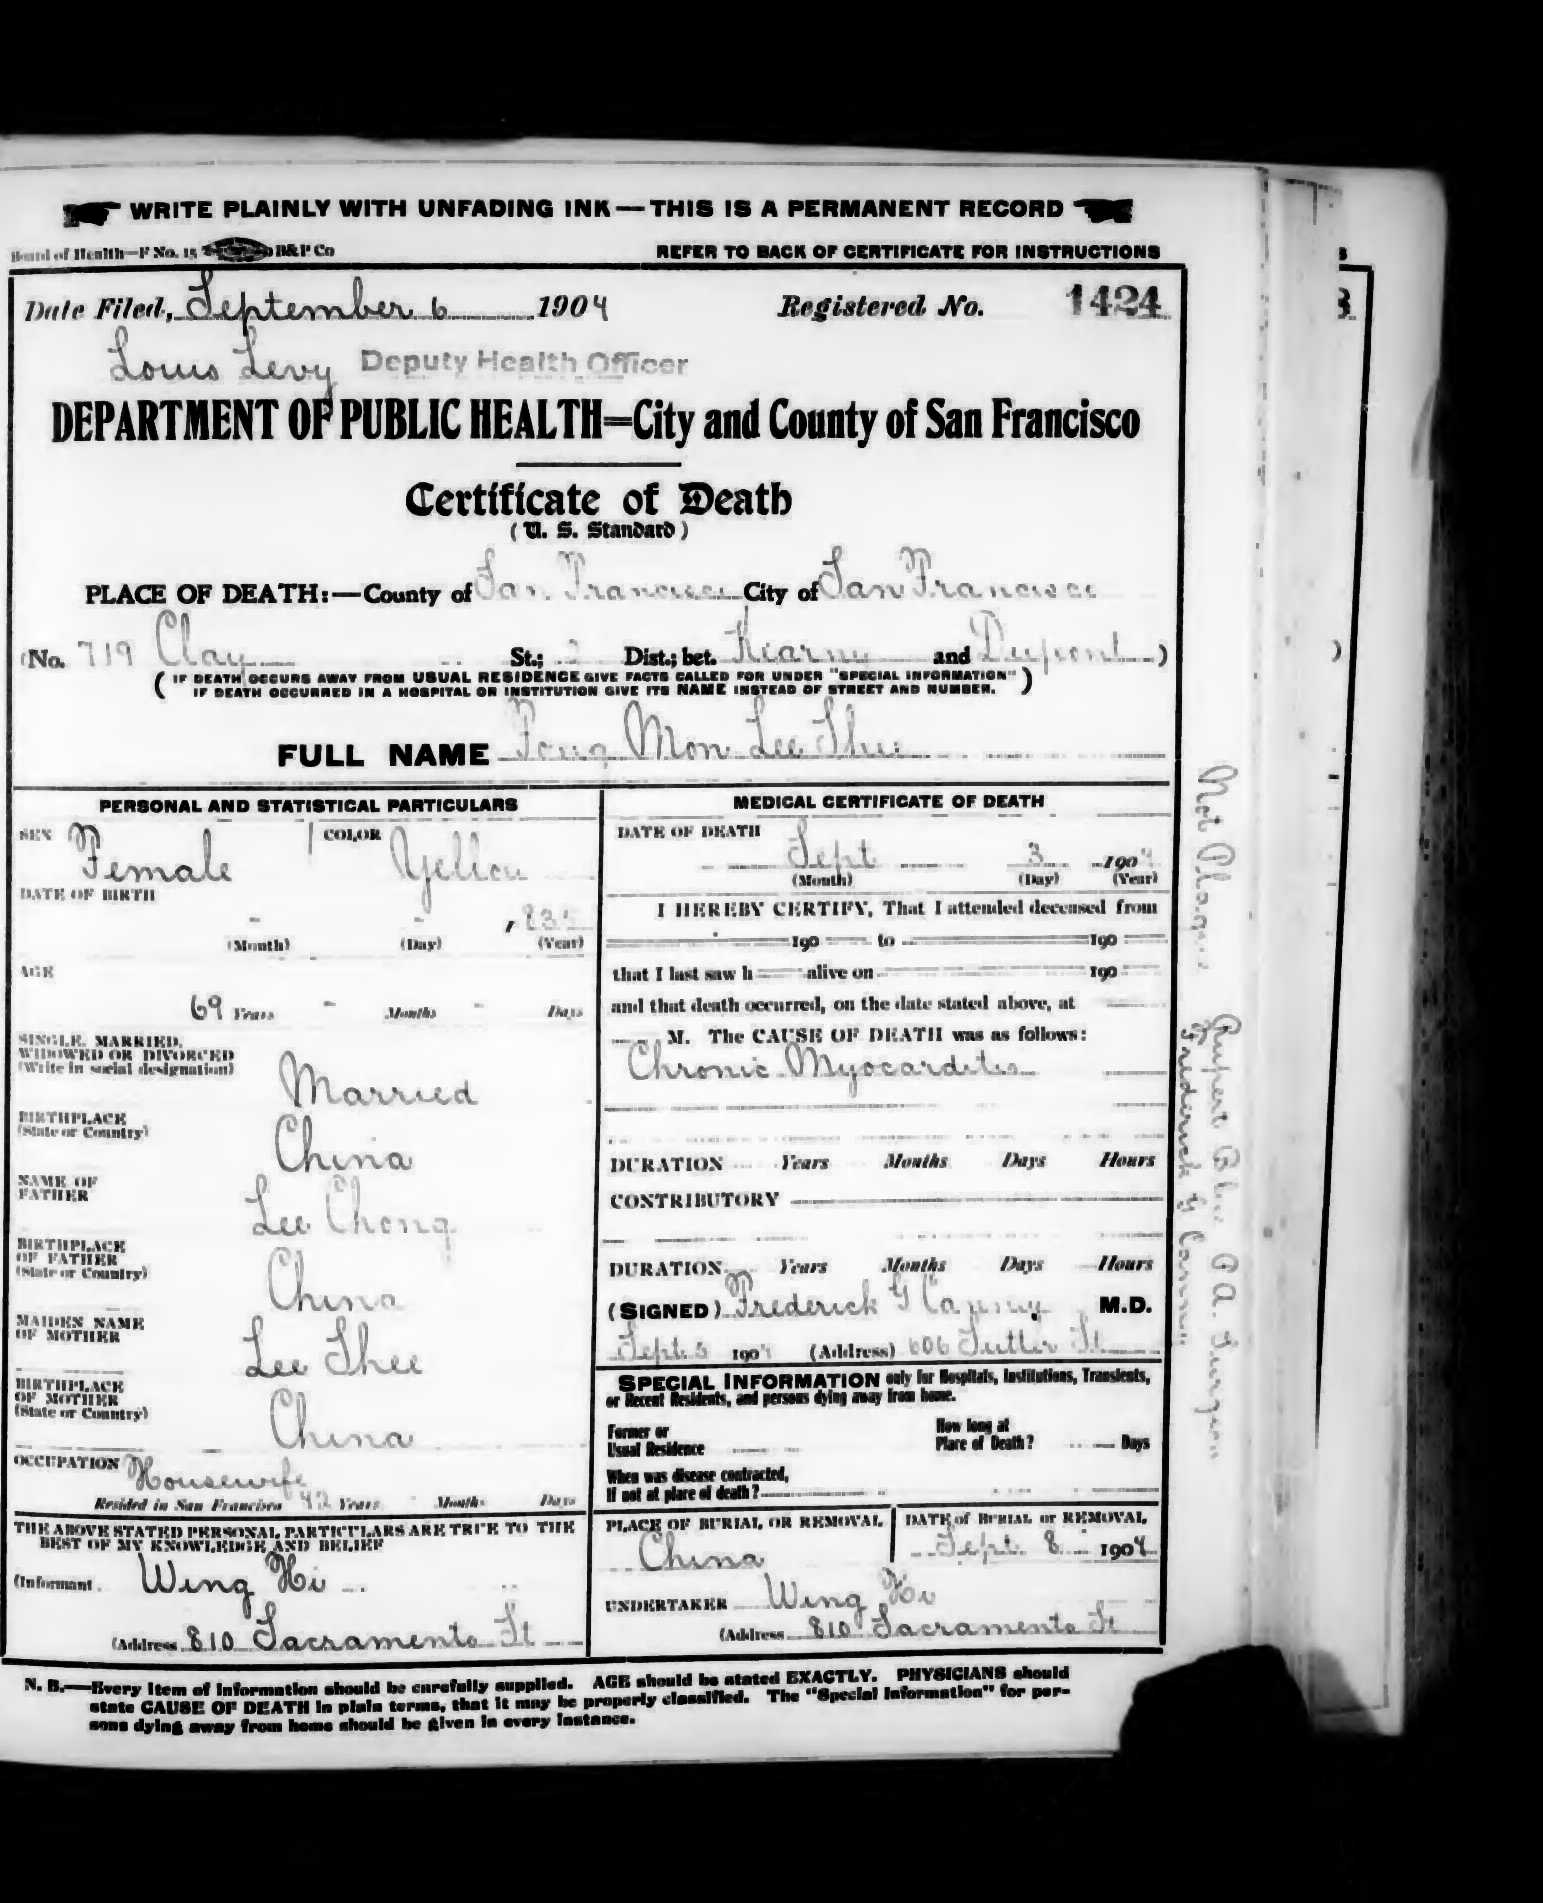 WRITE PLAINLY WITH UNFADING INK—THIS IS A PERMANENT RECORD
Board of Health—F No. 15 B&P Co REFER TO BACK OF CERTIFICATE FOR INSTRUCTIONS
Date Filed, September 6 1904 Registered No. 1424
Louis Levy Deputy Health Officer
DEPARTMENT OF PUBLIC HEALTH—City and County of San Francisco
Certificate of Death
(U. S. Standard)
PLACE OF DEATH:—County of San Francisco City of San Francisco
(No. 719 Clay St.; 2 Dist.; bet. Kearny and Dupont)
(IF DEATH OCCURS AWAY FROM USUAL RESIDENCE GIVE FACTS CALLED FOR UNDER "SPECIAL INFORMATION"
IF DEATH OCCURRED IN A HOSPITAL OR INSTITUTION GIVE ITS NAME INSTEAD OF STREET AND NUMBER.)
FULL NAME Fong Mon Lee Shee
PERSONAL AND STATISTICAL PARTICULARS
SEX Female COLOR Yellow
DATE OF BIRTH
- - , 835
(Month) (Day) (Year)
AGE
69 Years - Months - Days
SINGLE, MARRIED,
WIDOWED OR DIVORCED
(Write in social designation) Married
BIRTHPLACE
(State or Country) China
NAME OF
FATHER Lee Chong
BIRTHPLACE
OF FATHER
(State or Country) China
MAIDEN NAME
OF MOTHER Lee Shee
BIRTHPLACE
OF MOTHER
(State or Country) China
OCCUPATION Housewife
Resided in San Francisco 42 Years Months Days
THE ABOVE STATED PERSONAL PARTICULARS ARE TRUE TO THE
BEST OF MY KNOWLEDGE AND BELIEF
(Informant Wing Hi
(Address 810 Sacramento St
MEDICAL CERTIFICATE OF DEATH
DATE OF DEATH
Sept 3 1904
(Month) (Day) (Year)
I HEREBY CERTIFY, That I attended deceased from
190 to 190
that I last saw h alive on 190
and that death occurred, on the date stated above, at
M. The CAUSE OF DEATH was as follows:
Chronic Myocarditis
DURATION Years Months Days Hours
CONTRIBUTORY
DURATION Years Months Days Hours
(SIGNED) Frederick G Canney M.D.
Sept 5 1904 (Address) 606 Sutter St
SPECIAL INFORMATION only for Hospitals, Institutions, Transients,
or Recent Residents, and persons dying away from home.
Former or
Usual Residence
How long at
Place of Death? Days
When was disease contracted,
If not at place of death?
PLACE OF BURIAL OR REMOVAL
China
DATE of BURIAL or REMOVAL
Sept. 8 1904
UNDERTAKER Wing Hi
(Address 810 Sacramento St
N. B.—Every item of information should be carefully supplied. AGE should be stated EXACTLY. PHYSICIANS should
state CAUSE OF DEATH in plain terms, that it may be properly classified. The "Special Information" for per-
sons dying away from home should be given in every instance.
Not Plague Rupert Blue P.A. Surgeon
Frederick G Cann"